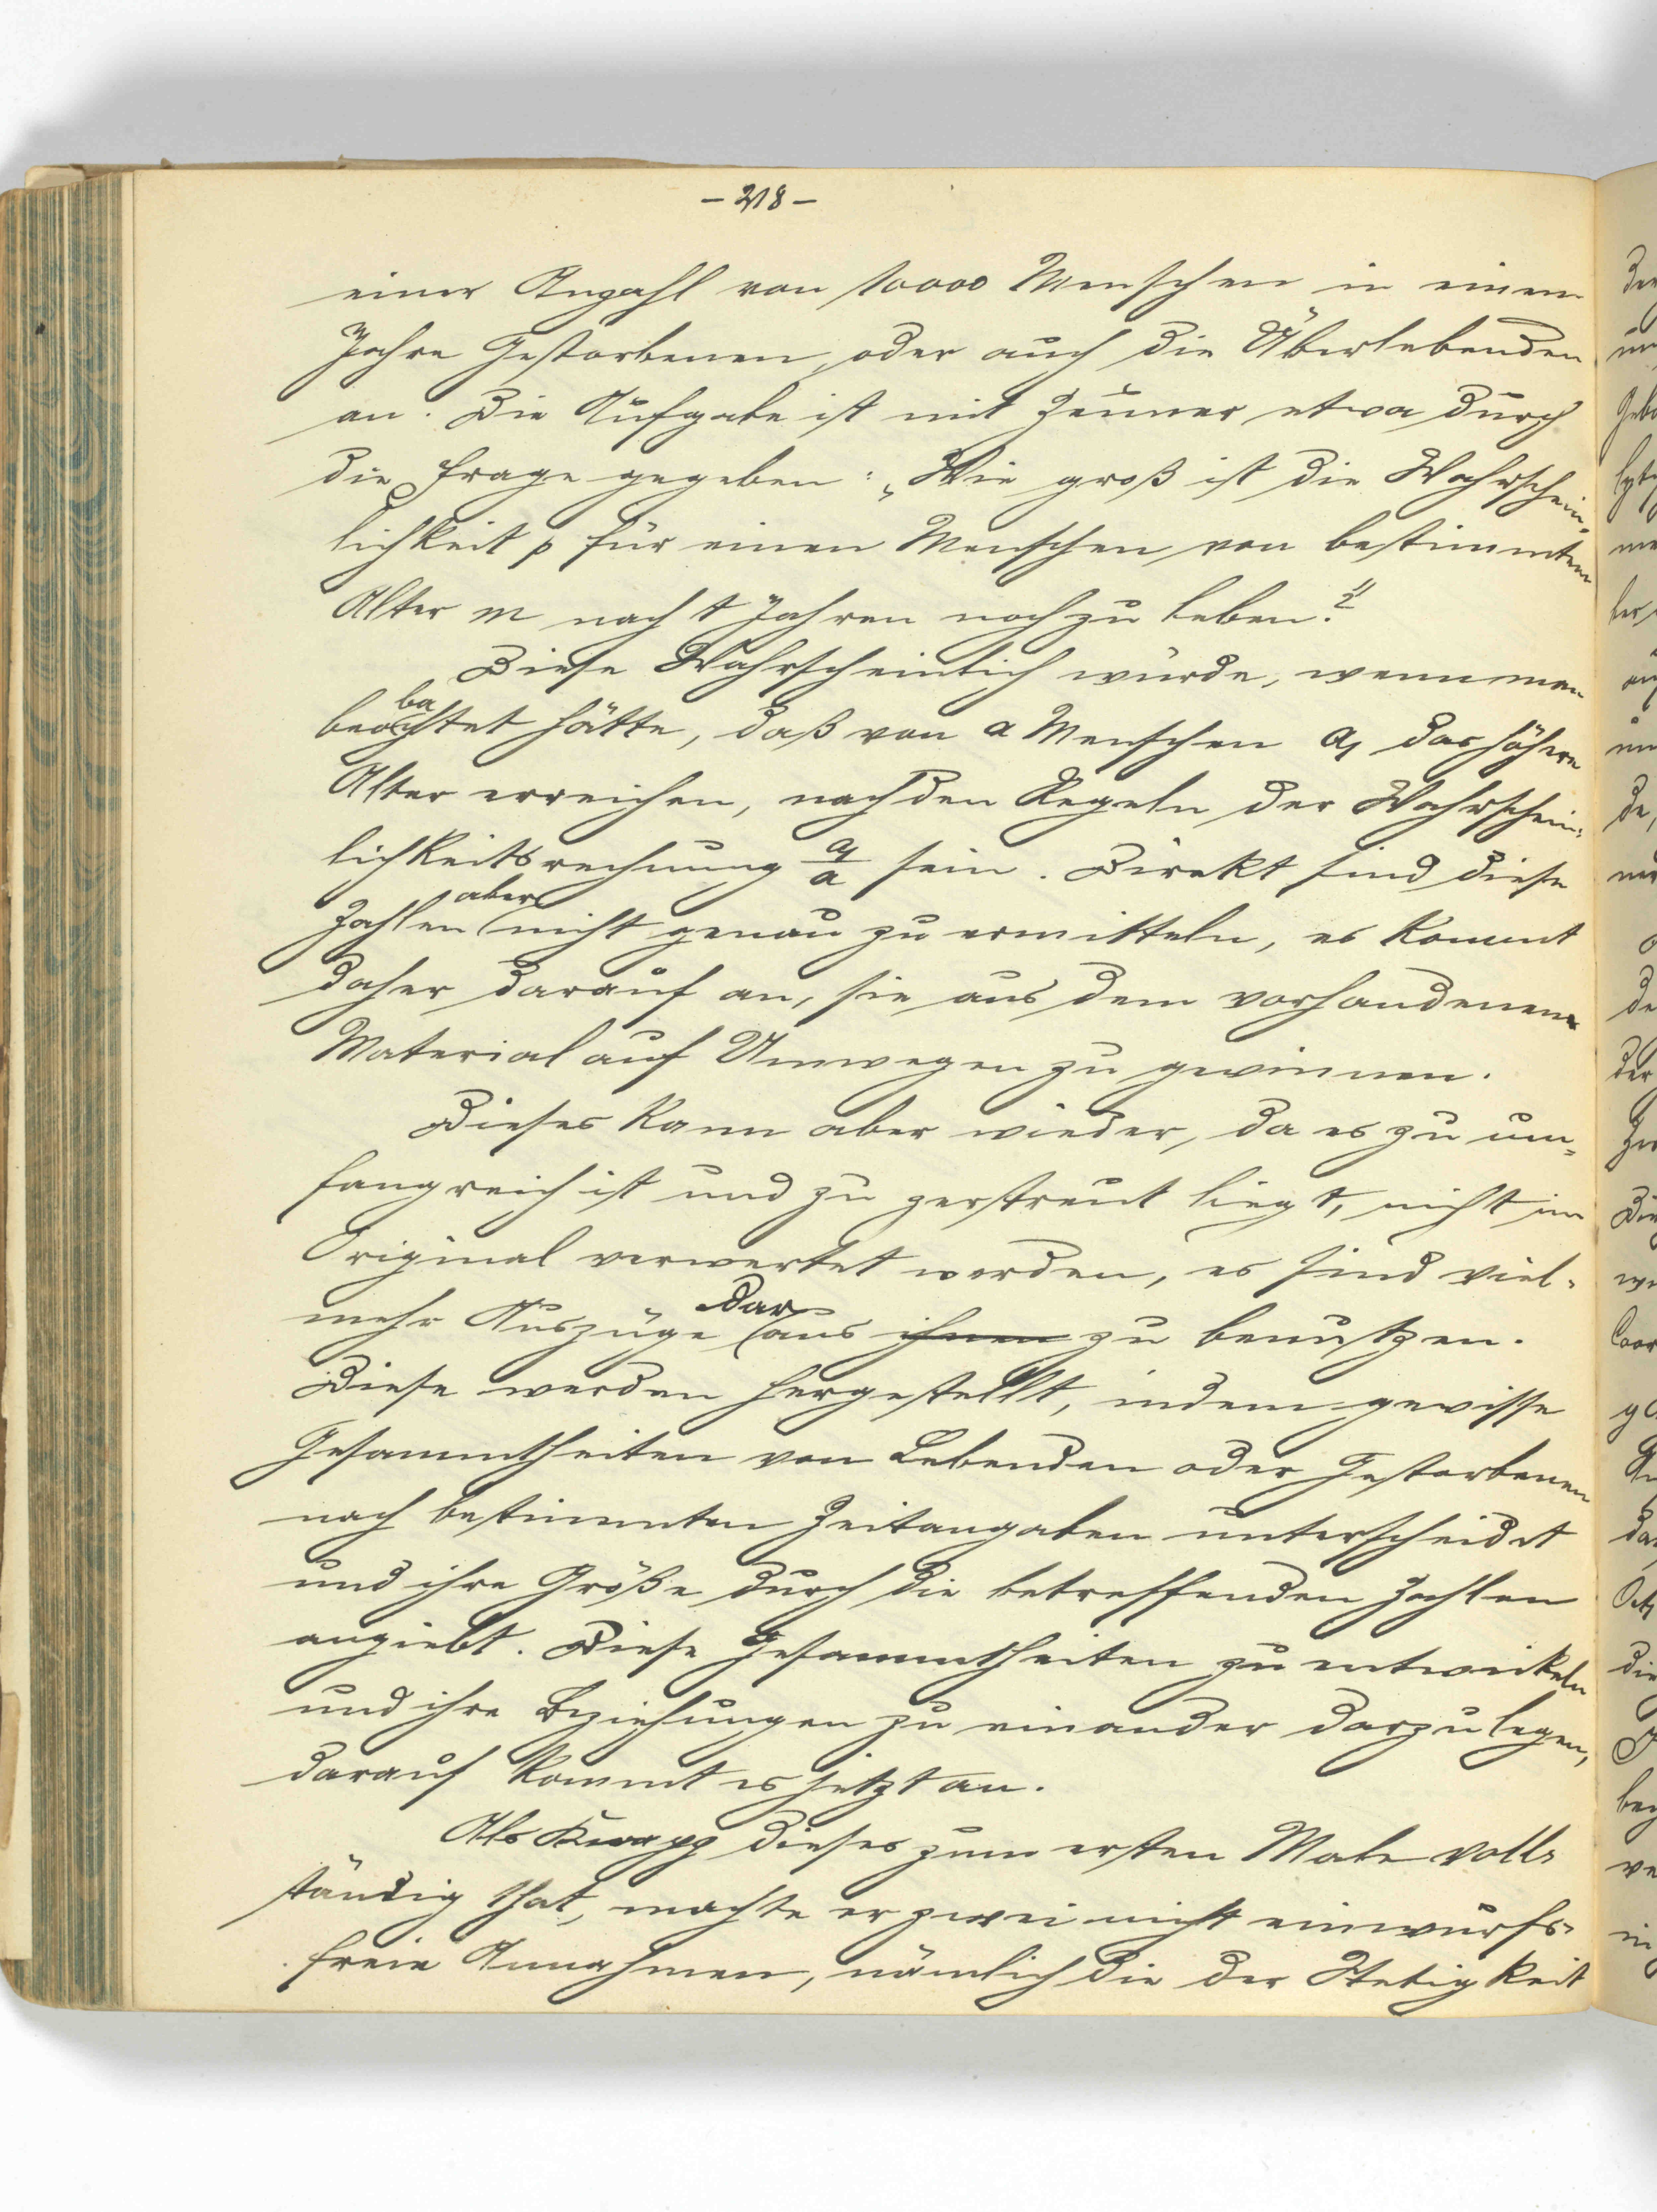 - 218 -
einer Anzahl von 10000 Menschen in einem
Jahre Gestorbenen, oder auch die Überlebenden
an. Die Aufgabe ist mit Zeuner etwa durch
die Frage gegeben: „Wie groß ist die Wahrschein-
lichkeit p für einen Menschen von bestimmtem
Alter m nach t Jahren noch zu leben?"
Diese Wahrscheinlich würde, wenn man
beobachtet hätte, daß von a Menschen a₁ das höhere
Alter erreichen, nach den Regeln der Wahrschein-
lichkeitsrechnung a₁/a sein. Direkt sind diese
Zahlen aber nicht genau zu ermitteln, es kommt
daher darauf an, sie aus dem vorhandenen
Material auf Umwegen zu gewinnen.
Dieses kann aber wieder, da es zu um-
fangreich ist und zu zerstreut liegt, nicht im
Original verwertet werden, es sind viel-
mehr Auszüge daraus ihnen zu benutzen.
Diese werden hergestellt, indem gewisse
Gesammtheiten von Lebenden oder Gestorbenen
nach bestimmten Zeitangaben unterscheidet
und ihre Größe durch die betreffenden Zahlen
angiebt. Diese Gesammtheiten zu entwickeln
und ihre Beziehungen zu einander darzulegen,
darauf kommt es jetzt an.
Als Knapp dieses zum ersten Male voll-
ständig that, machte er zwei nicht einwurfs-
freie Annahmen, nämlich die der Stetigkeit